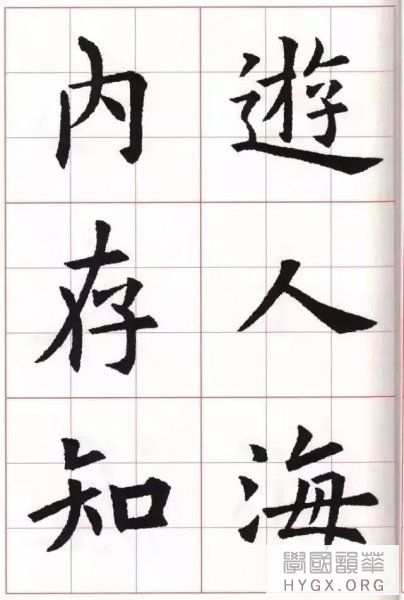 遊人海
内存知
華韻國學
HYGX.ORG